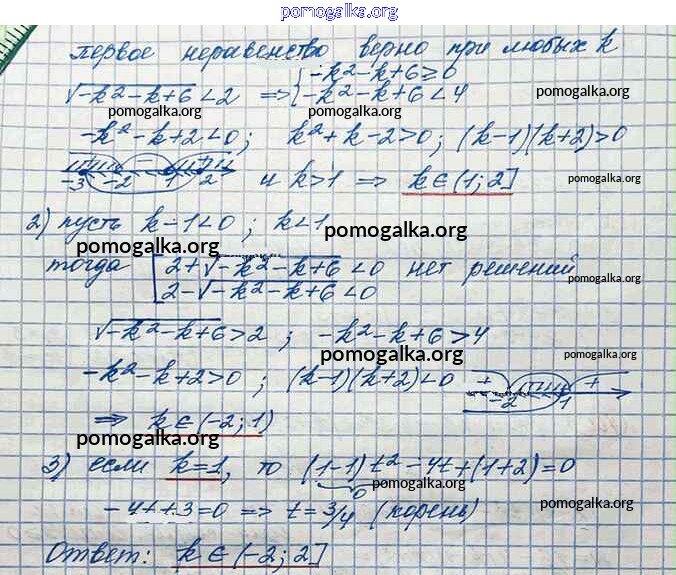 pomogalka.org
первое неравенство верно при любых k
√-k²-k+6 < 2 ⇒ { -k²-k+6 ≥ 0
-k²-k+6 < 4
pomogalka.org pomogalka.org pomogalka.org
-k²-k+2<0; k²+k-2>0; (k-1)(k+2)>0
+ - +
-3 -2 1 2 и k>1 ⇒ k∈(1;2]
pomogalka.org
2) пусть k-1<0; k<1
pomogalka.org pomogalka.org
тогда [ 2+√-k²-k+6 < 0 нет решений
2-√-k²-k+6 < 0
pomogalka.org
√-k²-k+6 > 2; -k²-k+6 > 4
pomogalka.org pomogalka.org
-k²-k+2>0; (k-1)(k+2)<0
+ +
-2 1
⇒ k∈(-2;1)
pomogalka.org
3) если k=1, то (1-1)t²-4t+(1+2)=0
0
pomogalka.org
-4t+3=0 ⇒ t=3/4 (корень)
pomogalka.org
Ответ: k∈(-2;2]
pomogalka.org pomogalka.org